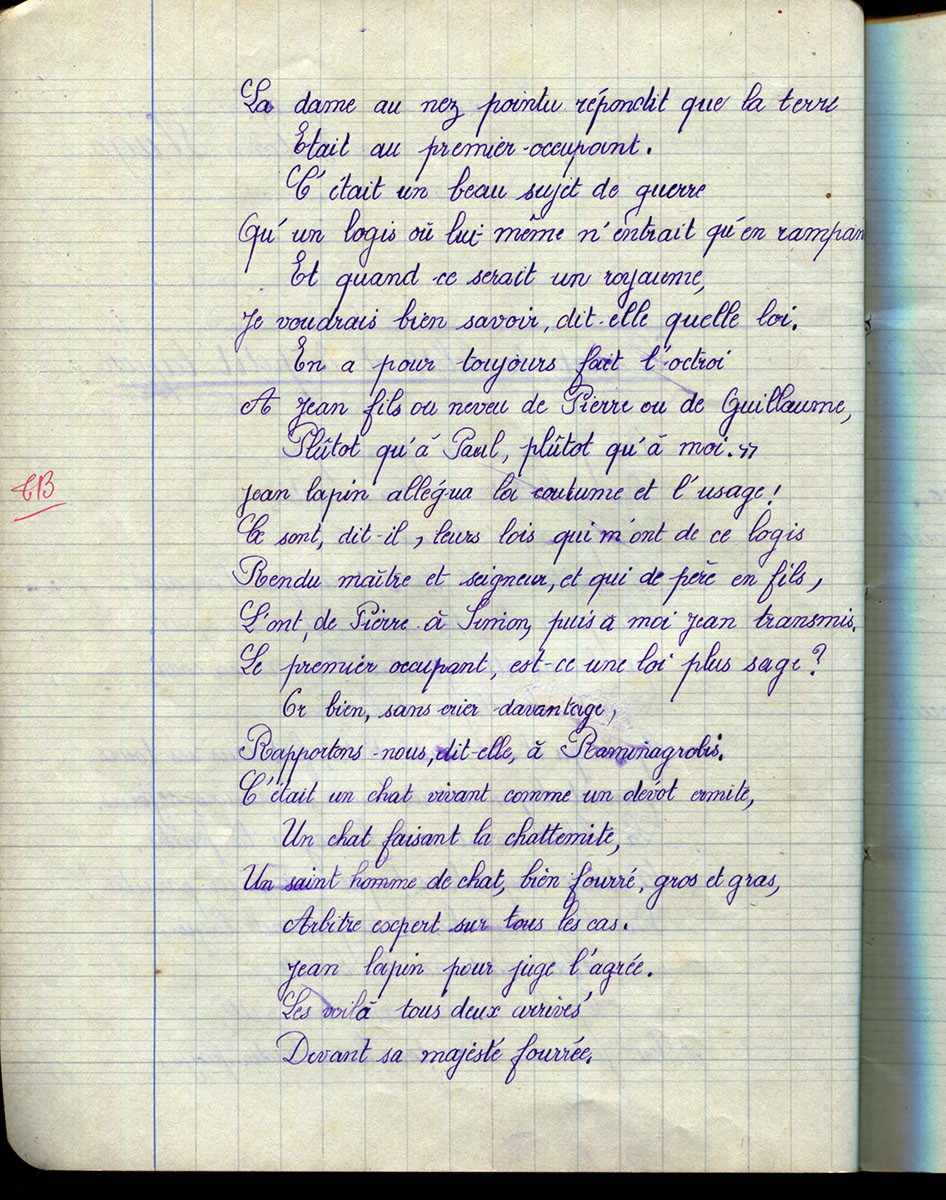 La dame au nez pointu répondit que la terre
Etait au premier-occupant.
C'était un beau sujet de guerre
Qu'un logis où lui même n'entrait qu'en rampan
Et quand ce serait un royaume,
Je voudrais bien savoir, dit-elle quelle loi.
En a pour toujours fait l'octroi
A Jean fils ou neveu de Pierre ou de Guillaume,
Plûtot qu'à Paul, plûtot qu'à moi."
Jean lapin allégua loi coutume et l'usage!
TB
Ce sont, dit-il, leurs lois qui m'ont de ce logis
Rendu maître et seigneur, et qui de père en fils,
L'ont, de Pierre à Simon, puis à moi Jean transmis.
Le premier occupant, est-ce une loi plus sage?
Or bien, sans crier davantage,
Rapportons-nous, dit-elle, à Raminagrobis.
C'était un chat vivant comme un dévot ermite,
Un chat faisant la chattemite,
Un saint homme de chat, bien fourré, gros et gras,
Arbitre expert sur tous les cas.
Jean lapin pour juge l'agrée.
Les voilà tous deux arrivés
Devant sa majesté fourrée.